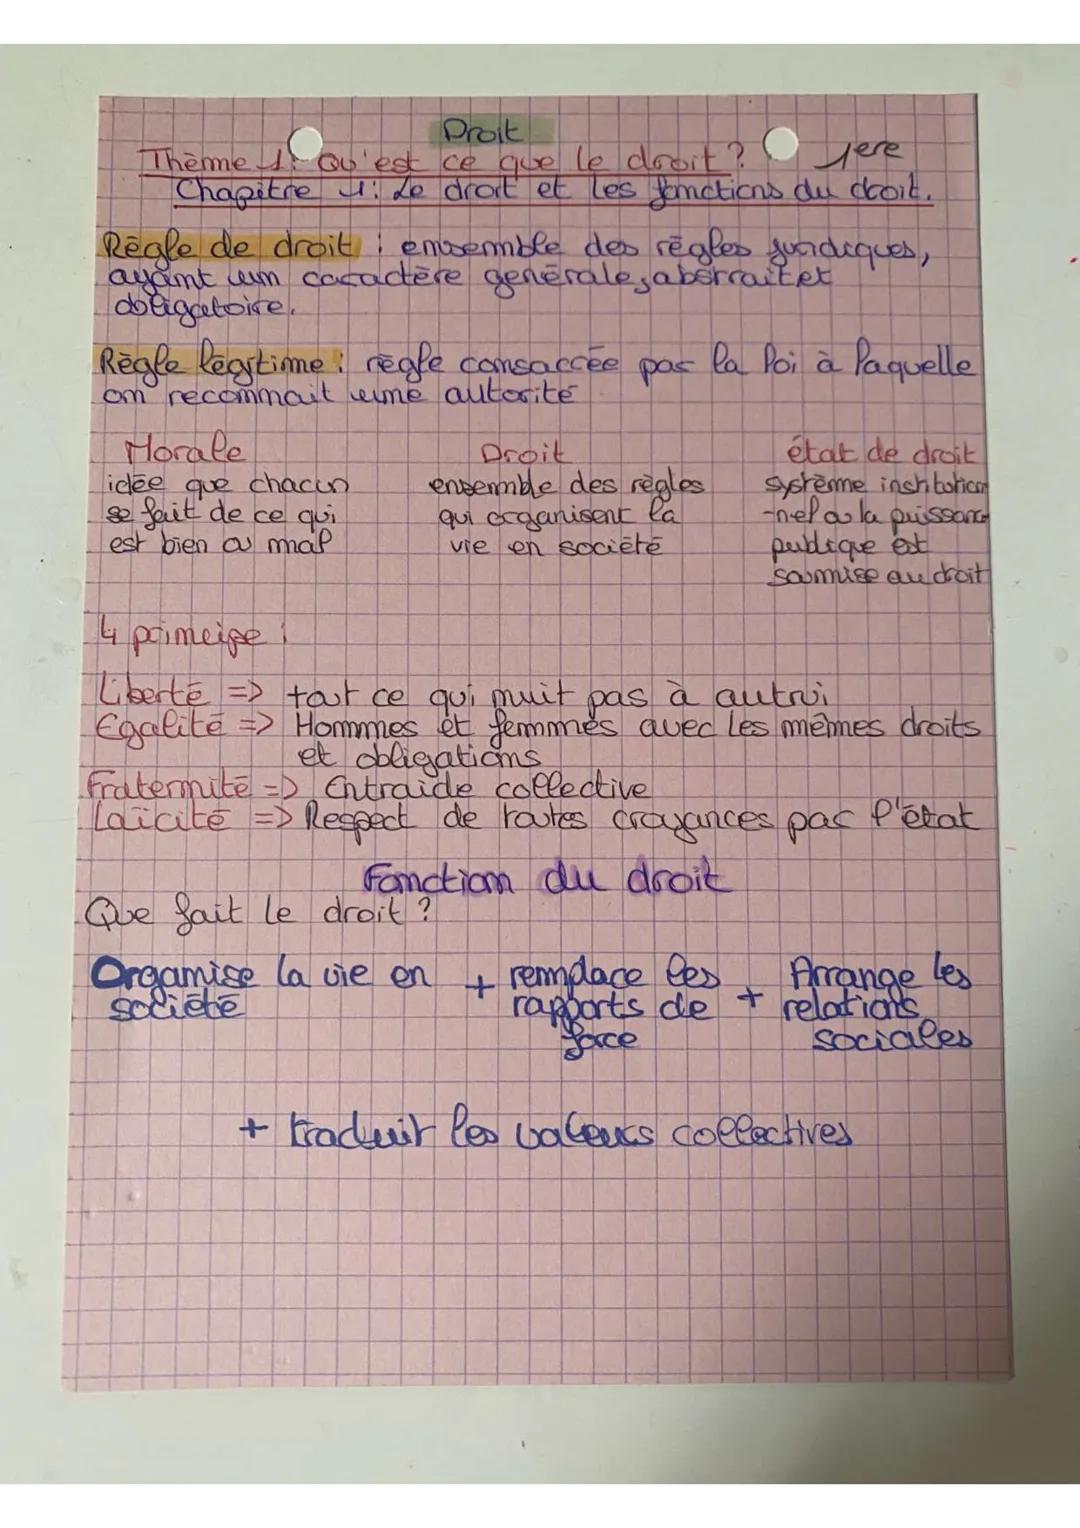 Droit
Thème 1: Qu'est ce que le droit? 1ere
Chapitre 1: Le droit et les fonctions du droit.
Règle de droit : ensemble des règles juridiques,
ayant un caractère générale, abstrait et
obligatoire.
Règle légitime : règle consacrée par la loi à laquelle
on reconnait une autorité
Morale
idée que chacun
se fait de ce qui
est bien ou mal
Droit
ensemble des règles
qui organisent la
vie en société
état de droit
système institution
-nel où la puissance
publique est
soumise au droit
4 principe :
Liberté => tout ce qui nuit pas à autrui
Egalité => Hommes et femmes avec les mêmes droits
et obligations
Fraternité => Entraide collective
Laïcité => Respect de toutes croyances par l'état
Fonction du droit
Que fait le droit ?
Organise la vie en
société
+ remplace les
rapports de
force
+ Arrange les
relations
sociales
+ traduit les valeurs collectives